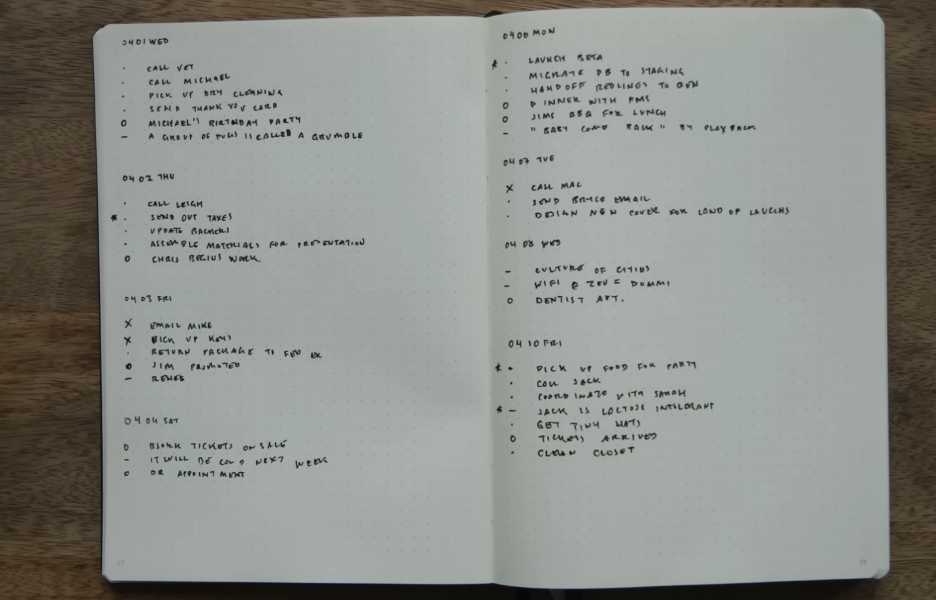 04 01 WED
· CALL VET
· CALL MICHAEL
· PICK UP DRY CLEANING
· SEND THANK YOU CARD
O MICHAEL'S BIRTHDAY PARTY
– A GROUP OF PUGS IS CALLED A GRUMBLE
04 02 THU
· CALL LEIGH
* · SEND OUT TAXES
· UPDATE BACKERS
· ASSEMBLE MATERIALS FOR PRESENTATION
O CHRIS BEGINS WORK.
04 03 FRI
X EMAIL MIKE
X PICK UP KEYS
· RETURN PACKAGE TO FED EX
O JIM PROMOTED
– RENEE
04 04 SAT
O BJORK TICKETS ON SALE
– IT WILL BE COLD NEXT WEEK
O DR APPOINTMENT
04 06 MON
* · LAUNCH BETA
· MIGRATE DB TO STAGING
· HANDOFF REDLINES TO BEN
O DINNER WITH
O JIMS BBQ FOR LUNCH
– "BABY COME BACK" BY PLAYBACK
04 07 TUE
X CALL MAC
· SEND BRYCE EMAIL
· DESIGN NEW COVER FOR LAND OF LAUGHS
04 08 WED
– CULTURE OF CITIES
– WIFI @
O DENTIST APT.
04 10 FRI
* · PICK UP FOOD FOR PARTY
· CALL JACK
· COORDINATE WITH SARAH
* – JACK IS LACTOSE INTOLERANT
· GET TINY HATS
O TICKETS ARRIVED
· CLEAN CLOSET